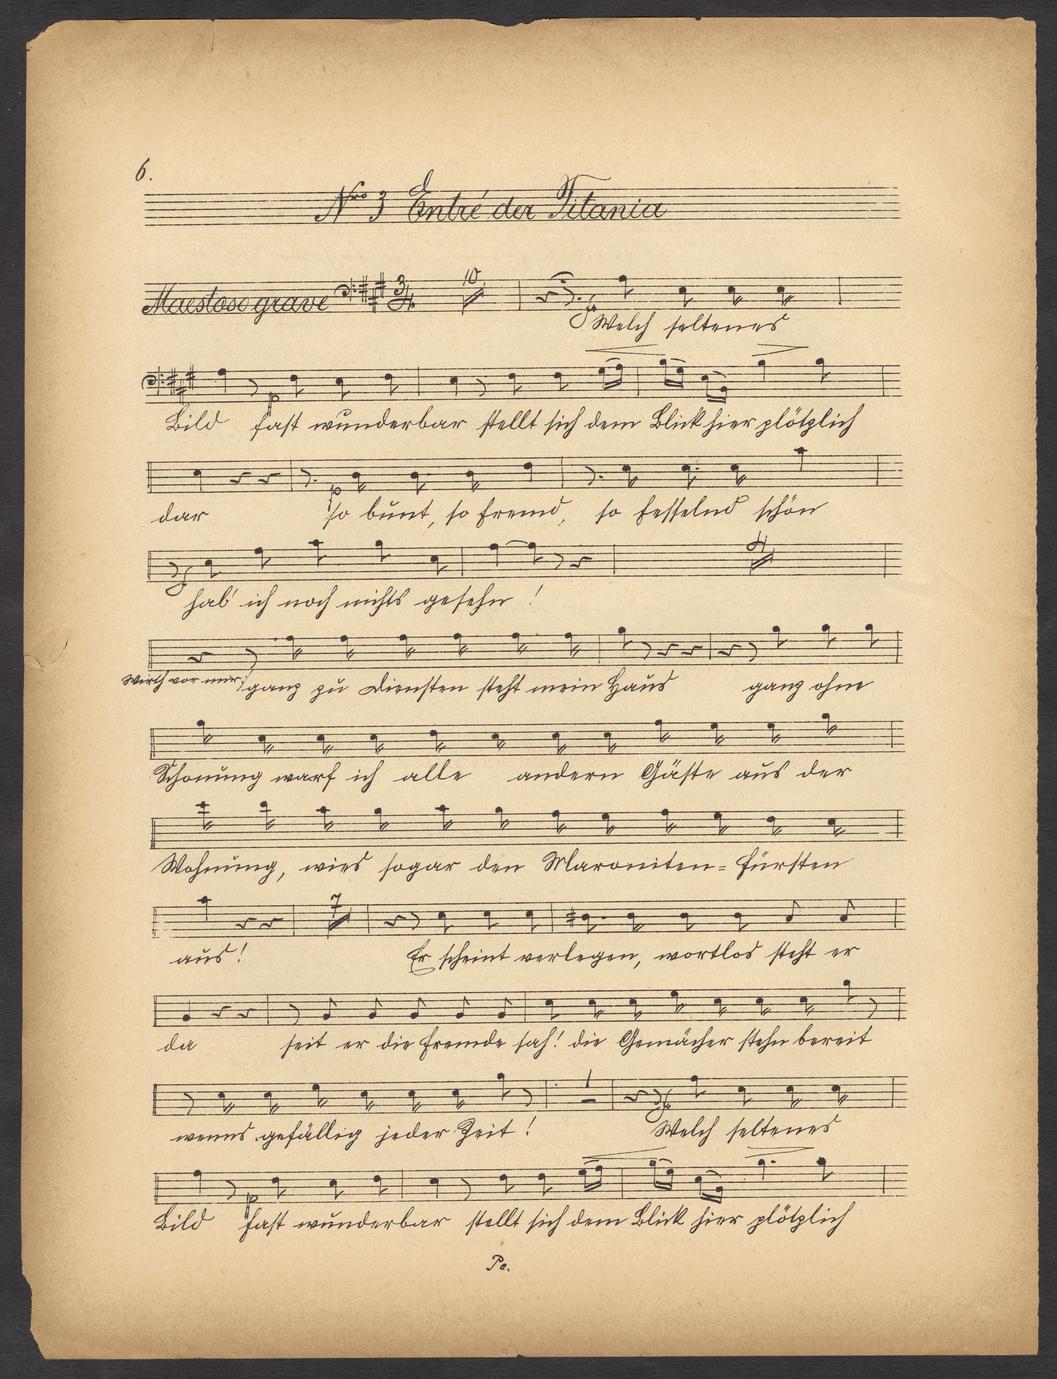 6.
Nro 3 Entré der Titania
Maestoso grave 3/4 10
Welch seltenes
Bild fast wunderbar stellt sich dem Blick hier plötzlich
dar so bunt, so fremd, so fesselnd schön
hab' ich noch nichts gesehn!
ganz zu Diensten steht mein Haus ganz ohne
Schonung warf ich alle andern Gäste aus der
Wohnung, wies sogar den Maroniten= fürsten
7
aus! Er scheint verlegen, wortlos steht er
da seit er die Fremde sah! die Gemächer stehn bereit
wenns gefällig jeder Zeit! Welch seltenes
Bild fast wunderbar stellt sich dem Blick hier plötzlich
Pe.